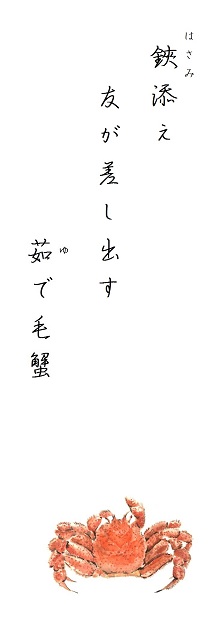 鋏添え
はさみ
友が差し出す
茹で毛蟹
ゆ